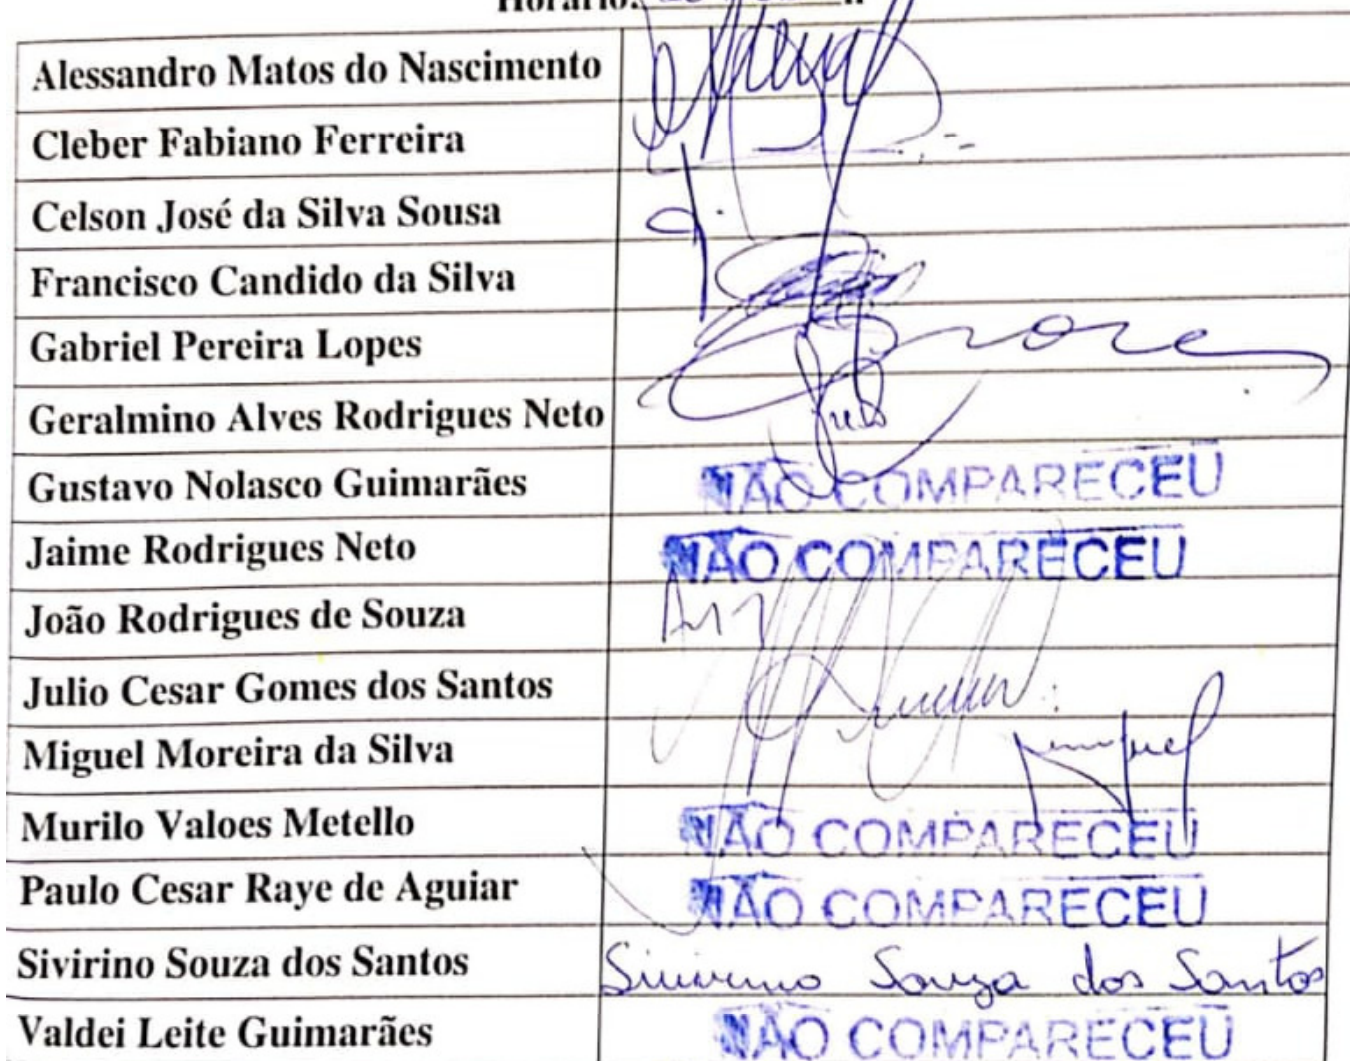 Horário:
Alessandro Matos do Nascimento
Cleber Fabiano Ferreira
Celson José da Silva Sousa
Francisco Candido da Silva
Gabriel Pereira Lopes
Geralmino Alves Rodrigues Neto
Gustavo Nolasco Guimarães NÃO COMPARECEU
Jaime Rodrigues Neto NÃO COMPARECEU
João Rodrigues de Souza
Julio Cesar Gomes dos Santos
Miguel Moreira da Silva
Murilo Valoes Metello NÃO COMPARECEU
Paulo Cesar Raye de Aguiar NÃO COMPARECEU
Sivirino Souza dos Santos Sivirino Souza dos Santos
Valdei Leite Guimarães NÃO COMPARECEU